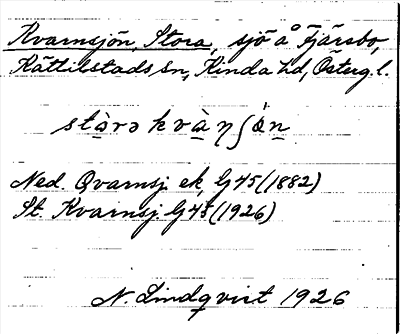 Kvarnsjön, Stora, sjö å Fjärsbo,
Kättilstads sn, Kinda hd, Österg. l.
stàrə kvàŋʃón
Ned. Qvarnsj. ek, G45 (1882)
St. Kvarnsj. G45 (1926)
N. Lindqvist 1926